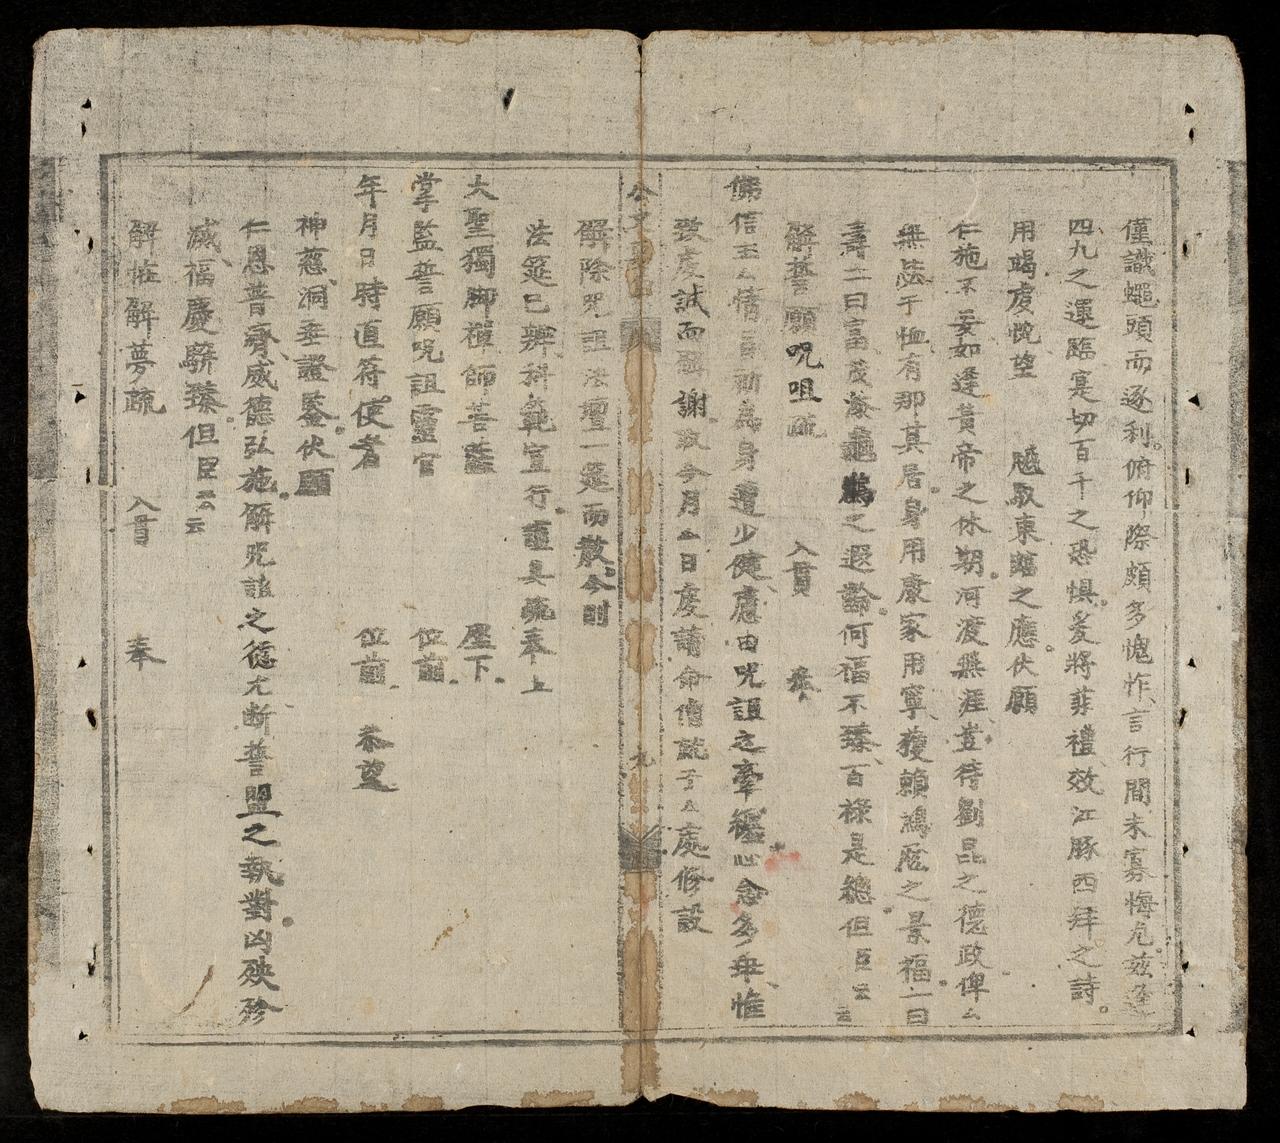 僅識蠅頭而逐利俯仰際頗多愧怍言行間未寡悔尤兹逢
四九之還臨寔切百千之恐惧爰將菲禮效江豚西拜之詩
用竭虔忱望 颷馭東臨之應伏願
仁施不妄如逢黃帝之休期河渡無涯豈待劉昆之德政俾厶
無恙于恤有那其居身用康家用寧獲賴鴻庬之景福一曰
壽二曰富茂介龜鶴之遐齡何福不臻百祿是總但臣云云
解誓願咒咀疏 入貫 奉
佛信主厶情旨切為身遭少健應由咒詛之牽纏心念多年惟
致虔誠而解謝取今月厶日虔請命僧就于厶處修設
解除咒詛法壇一筵而散今則
法筵已辦科範宣行謹具疏奉上
大聖獨脚禪師菩薩 座下
掌監誓願咒詛靈官 位前
年月日時直符使者 位前 恭望
神慈洞垂證鑒伏願
仁恩普濟威德弘施解咒詛之愆尤断誓盟之執對凶殃殄
滅福慶駢臻但臣云云
解帖解夢疏 入貫 奉
公文 九